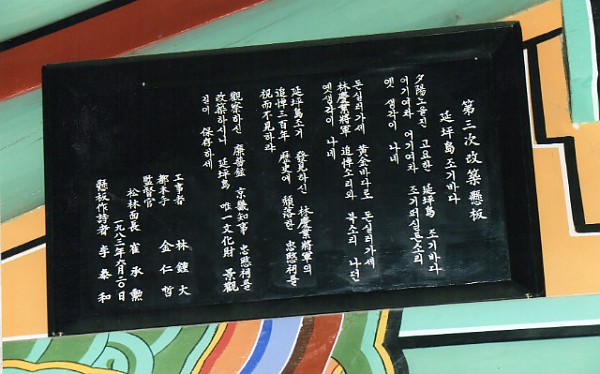 第三次改築懸板
延坪島 조기바다
夕陽노을진 고요한 延坪島 조기바다
어기여차 어기여차 조기퍼실든소리
옛 생각이 나네
돈실러가세 黃金바다로 돈실러가세
林慶業將軍 追悼소리와 북소리 나던
옛생각이 나네
延坪島조기 發見하신 林慶業將軍의
追悼三百年 歷史에 頹落한 忠愍祠를
視而不見하랴
觀察하신 廉普鉉 京畿知事 忠愍祠를
改築하시니 延坪島 唯一文化財 景觀
길이 保存하세
工事者 林鍾大
都木手 金仁哲
監督官
松林面長 崔承勳
一九八三年六月二〇日
懸板作詩者 李泰和